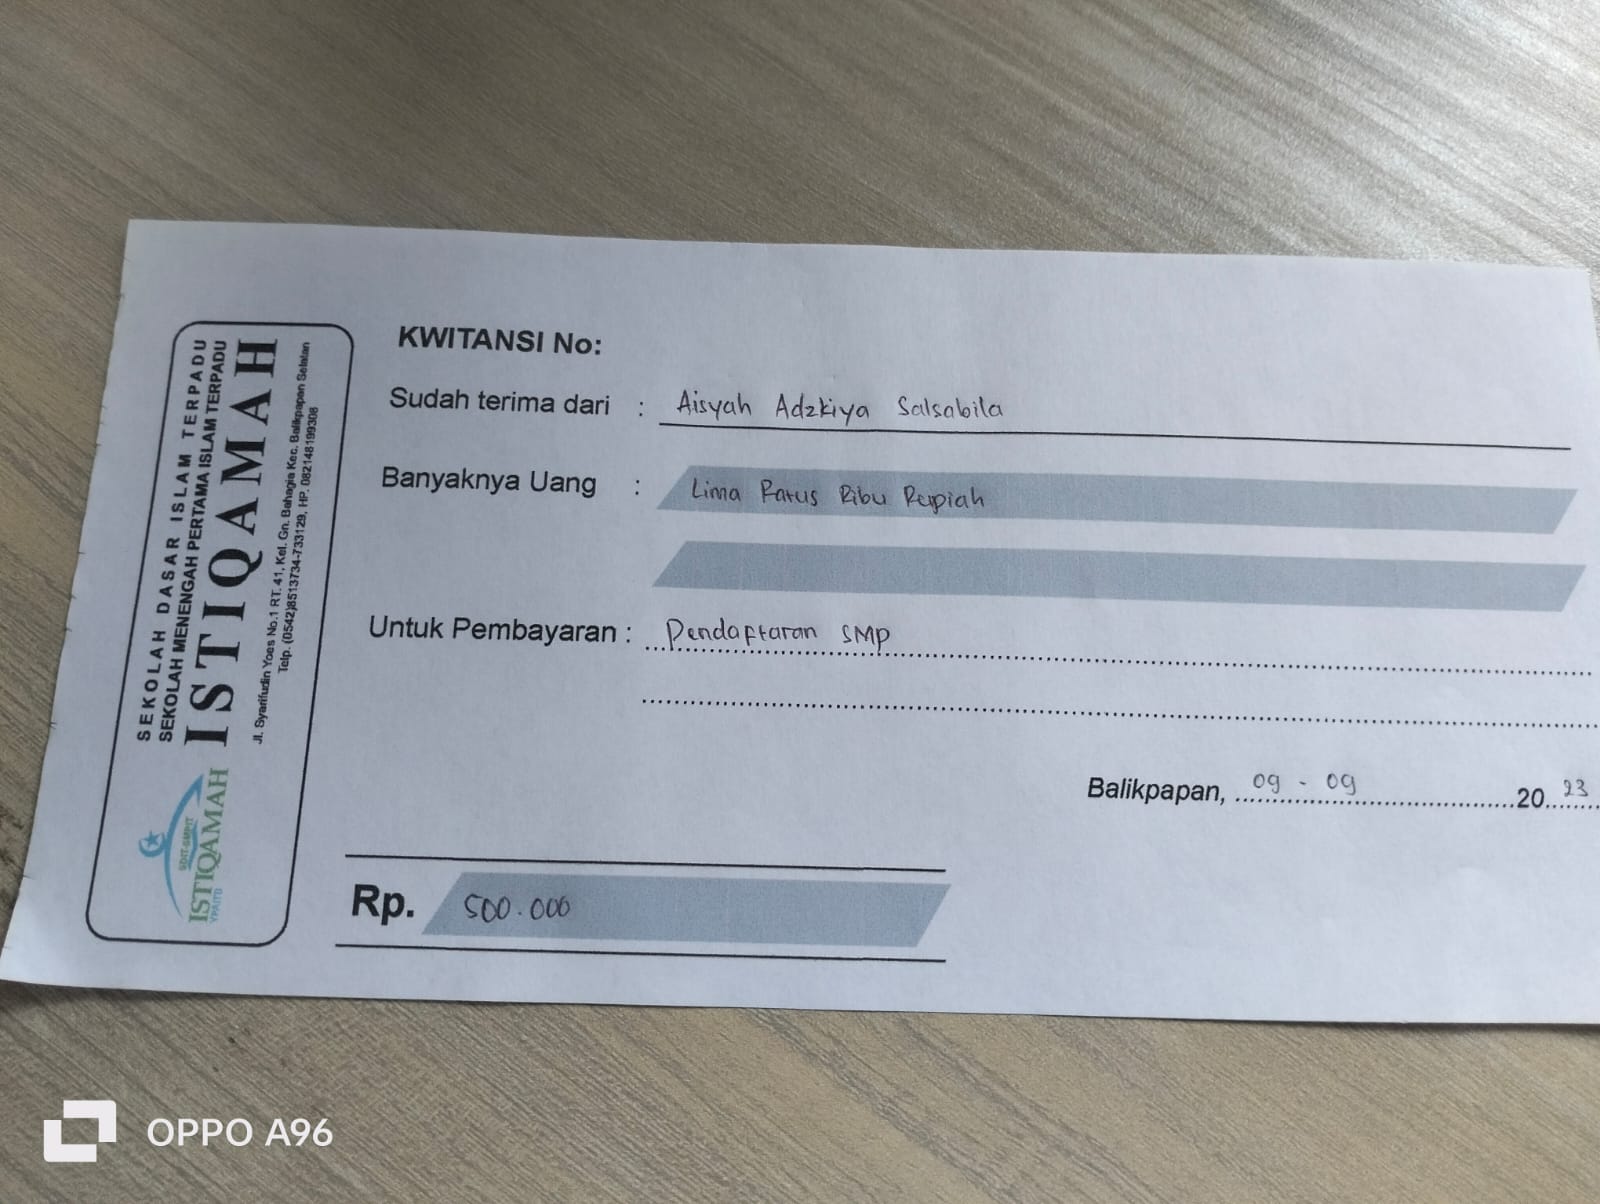 SEKOLAH DASAR ISLAM TERPADU
SEKOLAH MENENGAH PERTAMA ISLAM TERPADU
ISTIQAMAH
Jl. Syarifudin Yoes No.1 RT. 41, Kel. Gn. Bahagia Kec. Balikpapan Selatan
Telp. (0542)8513734-733129, HP. 082148199308
SDIT-SMPIT
ISTIQAMAH
YPAITB
KWITANSI No:
Sudah terima dari : Aisyah Adzkiya Salsabila
Banyaknya Uang : Lima Ratus Ribu Rupiah
Untuk Pembayaran : Pendaftaran SMP
Balikpapan, 09 - 09 2023
Rp. 500.000
OPPO A96